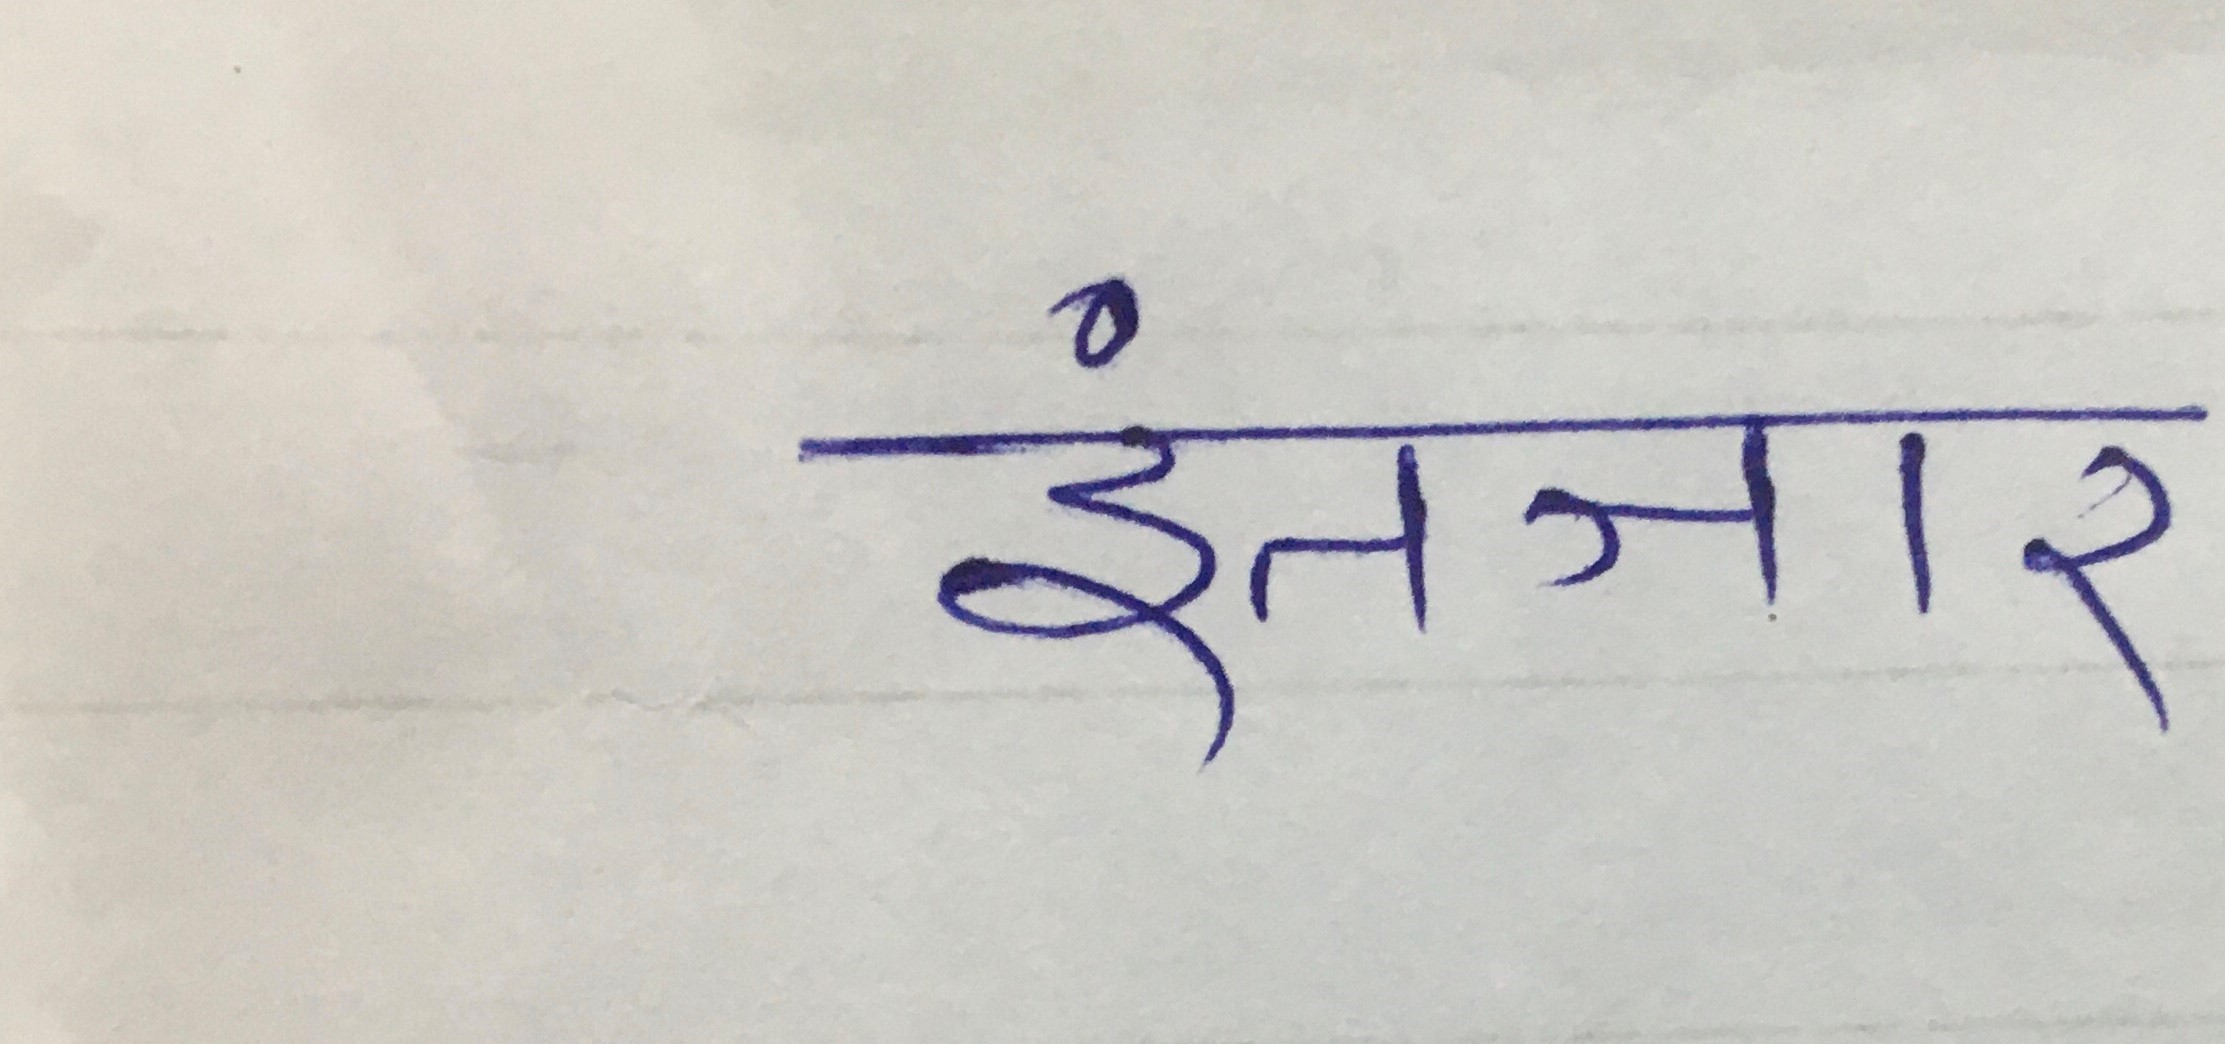 इंतजार